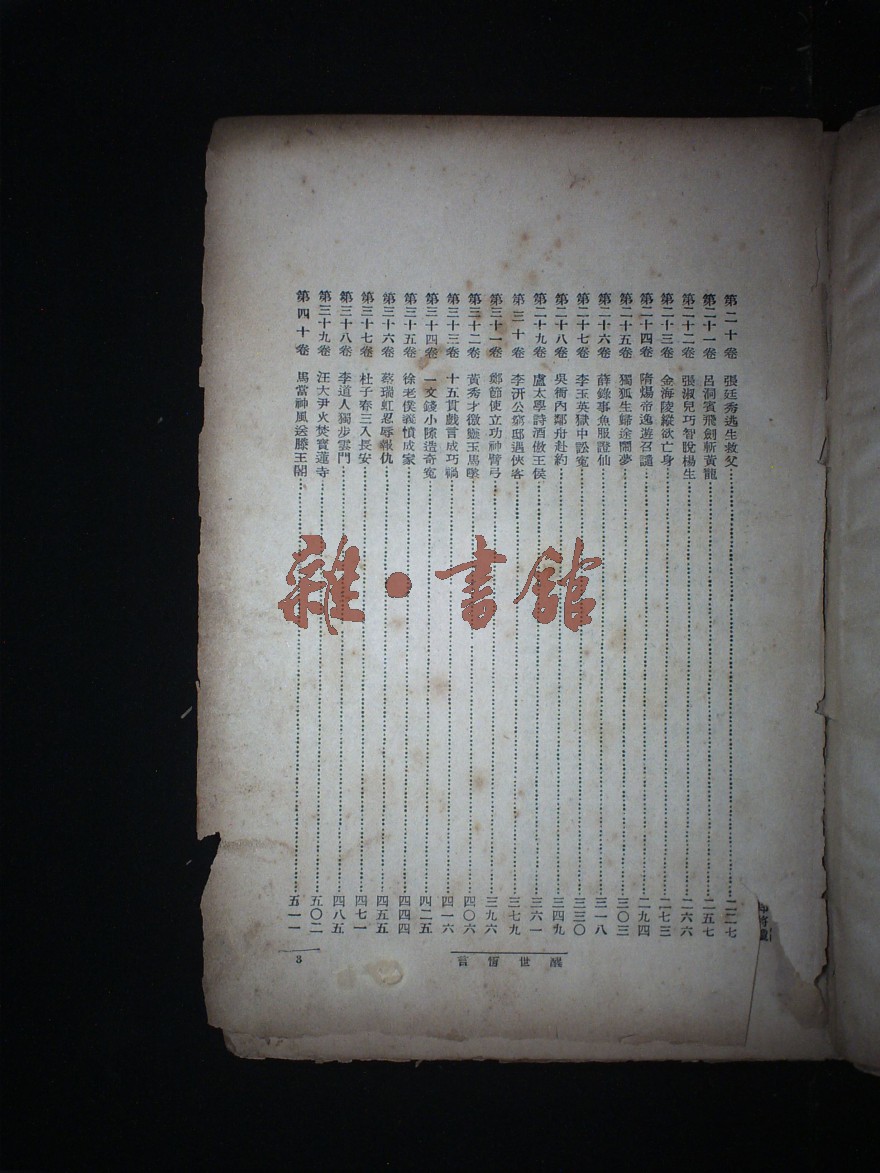 第二十卷 張廷秀逃生救父 二二七
第二十一卷 呂洞賓飛劍斬黃龍 二五七
第二十二卷 張淑兒巧智脫楊生 二六六
第二十三卷 金海陵縱欲亡身 二七三
第二十四卷 隋煬帝逸遊召譴 二九四
第二十五卷 獨孤生歸途鬧夢 三〇三
第二十六卷 薛錄事魚服證仙 三一八
第二十七卷 李玉英獄中訟冤 三三〇
第二十八卷 吳衙內鄰舟赴約 三四九
第二十九卷 盧太學詩酒傲王侯 三六一
第三十卷 李汧公窮邸遇俠客 三七九
第三十一卷 鄭節使立功神臂弓 三九六
第三十二卷 黃秀才徼靈玉馬墜 四〇六
第三十三卷 十五貫戲言成巧禍 四一六
第三十四卷 一文錢小隙造奇冤 四二五
第三十五卷 徐老僕義憤成家 四四四
第三十六卷 蔡瑞虹忍辱報仇 四五五
第三十七卷 杜子春三入長安 四七一
第三十八卷 李道人獨步雲門 四八五
第三十九卷 汪大尹火焚寶蓮寺 五〇二
第四十卷 馬當神風送滕王閣 五一一
醒世恆言
3
雜·書館